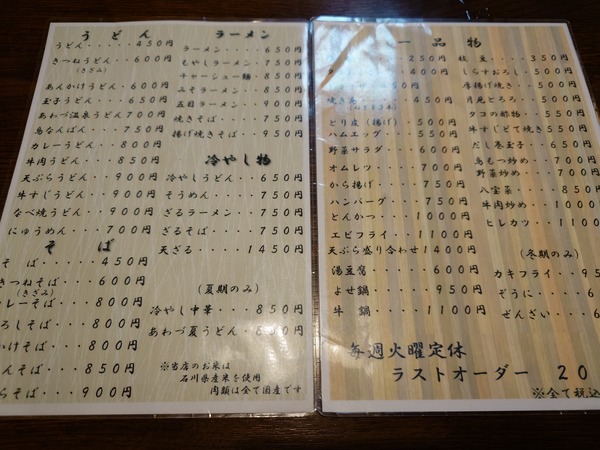 うどん
うどん・・・・・450円
きつねうどん・・600円
(きざみ)
あんかけうどん・600円
玉子うどん・・・650円
あわづ温泉うどん700円
鳥なんばん・・・750円
カレーうどん・・800円
牛肉うどん・・・850円
天ぷらうどん・・900円
牛すじうどん・・900円
なべ焼うどん・・900円
にゅうめん・・・700円
そば
そば・・・・・450円
きつねそば・・・600円
(きざみ)
カレーそば・・・800円
ろしそば・・・800円
かけそば・・・800円
んそば・・・・850円
らそば・・・・900円
ラーメン
ラーメン・・・・650円
もやしラーメン・750円
チャーシュー麺・850円
みそラーメン・・850円
五目ラーメン・・900円
焼きそば・・・・750円
揚げ焼きそば・・950円
冷やし物
冷やしうどん・・650円
そうめん・・・・750円
ざるラーメン・・750円
ざるそば・・・・750円
天ざる・・・・1450円
(夏期のみ)
冷やし中華・・・850円
あわづ夏うどん・860円
※当店のお米は
石川県産米を使用
肉類は全て国産です
一品物
250円
400円
焼き魚・・・・450円
とり皮(揚げ)500円
ハムエッグ・・・550円
野菜サラダ・・・600円
オムレツ・・・・700円
から揚げ・・・・750円
ハンバーグ・・・750円
とんかつ・・・1000円
エビフライ・・1100円
天ぷら盛り合わせ1400円
湯豆腐・・・・・600円
よせ鍋・・・・・950円
牛鍋・・・・・1100円
枝豆・・・・・350円
しらすおろし・500円
厚揚げ焼き・・500円
月見とろろ・・500円
タコの酢物・・550円
牛すじどて焼き550円
だし巻玉子・・650円
鳥もつ炒め・・700円
野菜炒め・・・700円
八宝菜・・・・850
牛肉炒め・・・1000
ヒレカツ・・・1100
(冬期のみ)
カキフライ・・95
ぞうに・・・・6
ぜんざい・・・6
毎週火曜定休
ラストオーダー 20
※全て税込